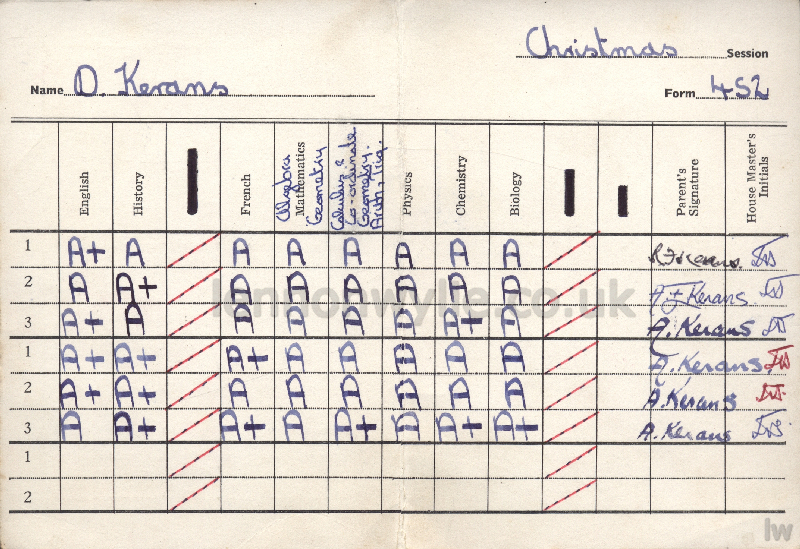 Christmas Session
Name D. Kerans
Form 4S2
English History French Algebra Mathematics Geometry Calculus & Co-ordinate Geometry. Arith, Trig. Physics Chemistry Biology Parent's Signature House Master's Initials
1 A+ A A A A A A A
2 A A+ A A A A A A A.F Kerans
3 A+ A A A A A A+ A A. Kerans
1 A+ A+ A+ A A A A A A. Kerans
2 A+ A+ A A A A A A A. Kerans
3 A A+ A+ A A+ A A+ A+ A. Kerans
1
2
lennonwylie.co.uk
lw